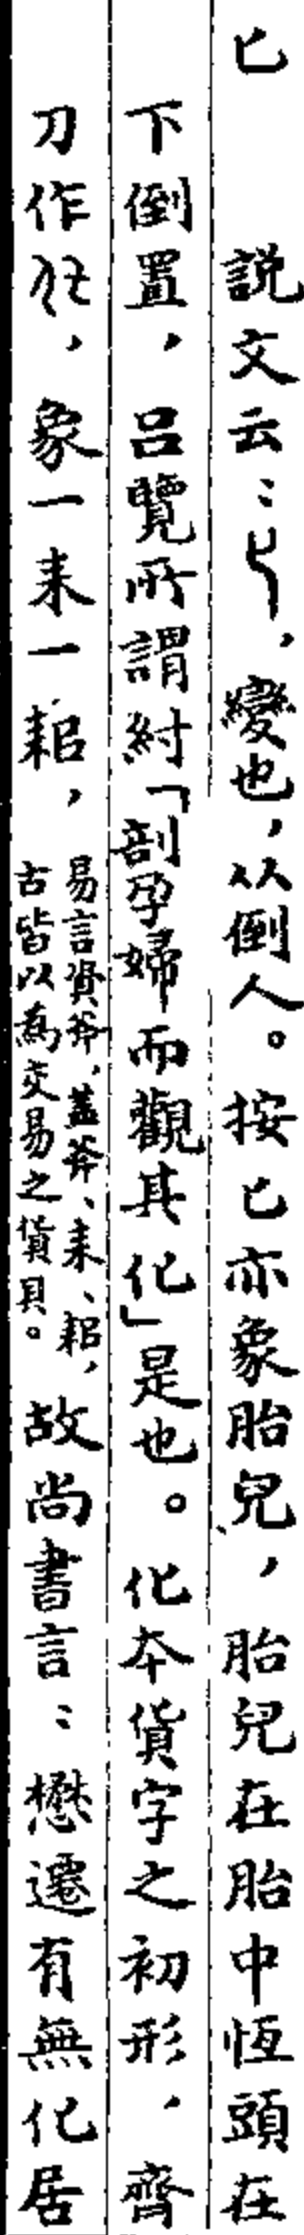 匕　說文云：，變也，从倒人。按匕亦象胎兒，胎兒在胎中恆頭在
下倒置，呂覽所謂紂「剖孕婦而觀其化」是也。化本貨字之初形，齊
刀作，象一耒一耜，易言資斧，蓋斧、耒、耜，古皆以為交易之貨具。故尚書言：懋遷有無化居